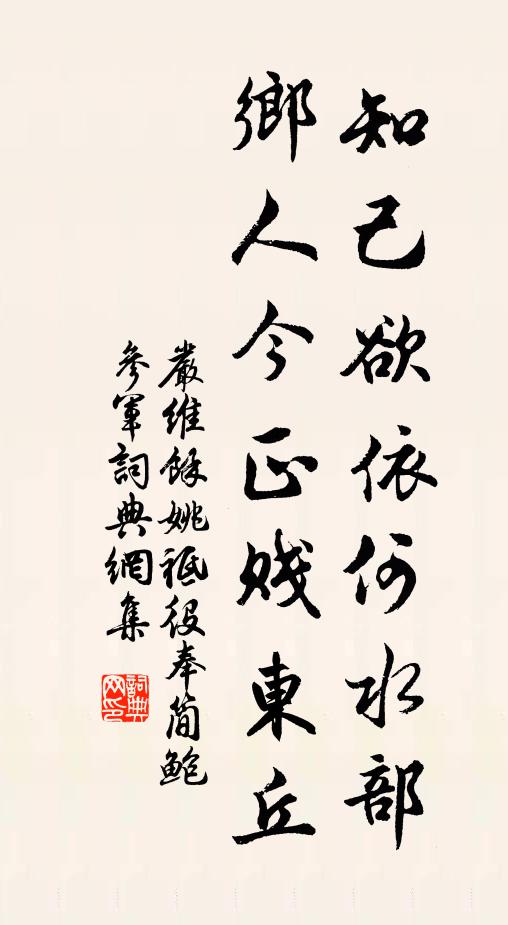 知己欲依何水部
鄉人今正賤東丘
嚴維餘姚祗役奉簡鮑
參軍詞典網集
詞典
网印